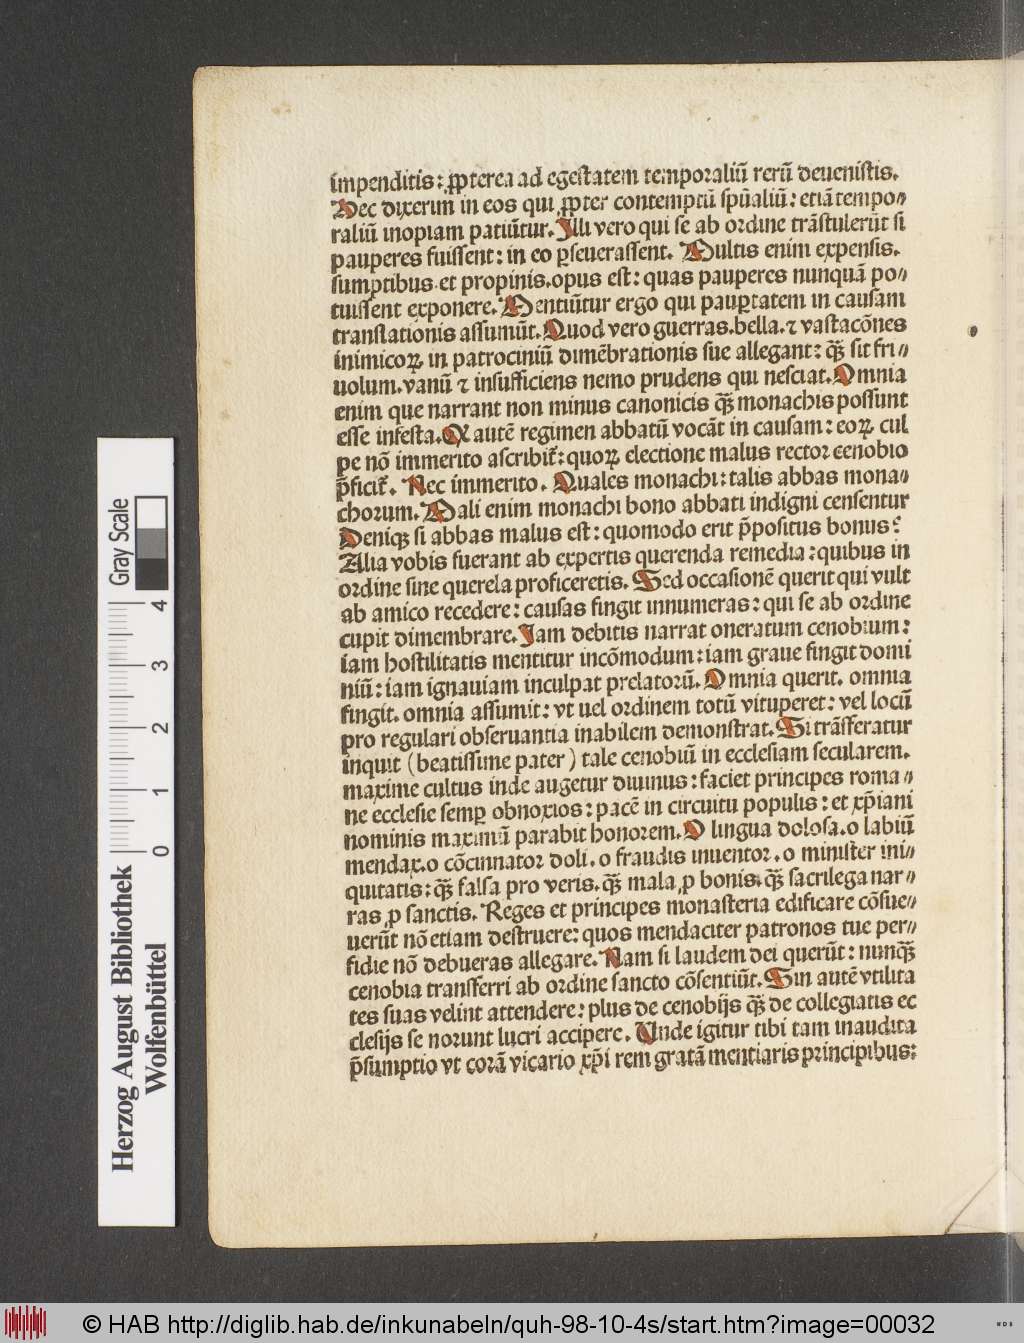 impenditis: ꝓpterea ad egestatem temporaliū rerū deuenistis.
Hec dixerim in eos qui ꝓpter contemptū spūaliū: etiā tempo〃
raliū inopiam patiūtur. Illi vero qui se ab ordine trāstulerūt si
pauperes fuissent: in eo ꝑseuerassent. Multis enim expensis.
sumptibus et propinis. opus est: quas pauperes nunquā po〃
tuissent exponere. Mentiūtur ergo qui pauꝑtatem in causam
translationis assumūt. Quod vero guerras. bella. ⁊ vastacōnes
inimicoꝝ in patrociniū dimēbrationis sue allegant: qꝫ sit fri〃
uolum. vanū ⁊ insufficiens nemo prudens qui nesciat. Omnia
enim que narrant non minus canonicis qꝫ monachis possunt
esse infesta. Q autē regimen abbatū vocāt in causam: eoꝝ cul
pe nō immerito ascribit̃: quoꝝ electione malus rector cenobio
p̄ficit̃. Nec immerito. Quales monachi: talis abbas mona〃
chorum. Mali enim monachi bono abbati indigni censentur
Deniqꝫ si abbas malus est: quomodo erit p̄positus bonus?
Alia vobis fuerant ab expertis querenda remedia: quibus in
ordine sine querela proficeretis. Sed occasionē querit qui vult
ab amico recedere: causas fingit innumeras: qui se ab ordine
cupit dimembrare. Iam debitis narrat oneratum cenobium:
iam hostilitatis mentitur incōmodum: iam graue fingit domi
niū: iam ignauiam inculpat prelatorū. Omnia querit. omnia
fingit. omnia assumit: vt uel ordinem totū vituperet: vel locū
pro regulari obseruantia inabilem demonstrat. Si trāsferatur
inquit (beatissime pater) tale cenobiū in ecclesiam secularem.
maxime cultus inde augetur diuinus: faciet principes roma〃
ne ecclesie semꝑ obnoxios: pacē in circuitu populis: et xp̄iani
nominis maximū parabit honorem. O lingua dolosa. o labiū
mendax. o cōcinnator doli. o fraudis inuentor. o minister ini〃
quitatis: qꝫ falsa pro veris. qꝫ mala ꝓ bonis. qꝫ sacrilega nar〃
ras ꝓ sanctis. Reges et principes monasteria edificare cōsue〃
uerūt nō etiam destruere: quos mendaciter patronos tue per〃
fidie nō debueras allegare. Nam si laudem dei querūt: nunqꝫ
cenobia transferri ab ordine sancto cōsentiūt. Sin autē vtilita
tes suas velint attendere: plus de cenobijs qꝫ de collegiatis ec
clesijs se norunt lucri accipere. Unde igitur tibi tam inaudita
p̄sumptio vt corā vicario xp̄i rem gratā mentiaris principibus:
Gray Scale
0 1 2 3 4
Herzog August Bibliothek
Wolfenbüttel
© HAB http://diglib.hab.de/inkunabeln/quh-98-10-4s/start.htm?image=00032